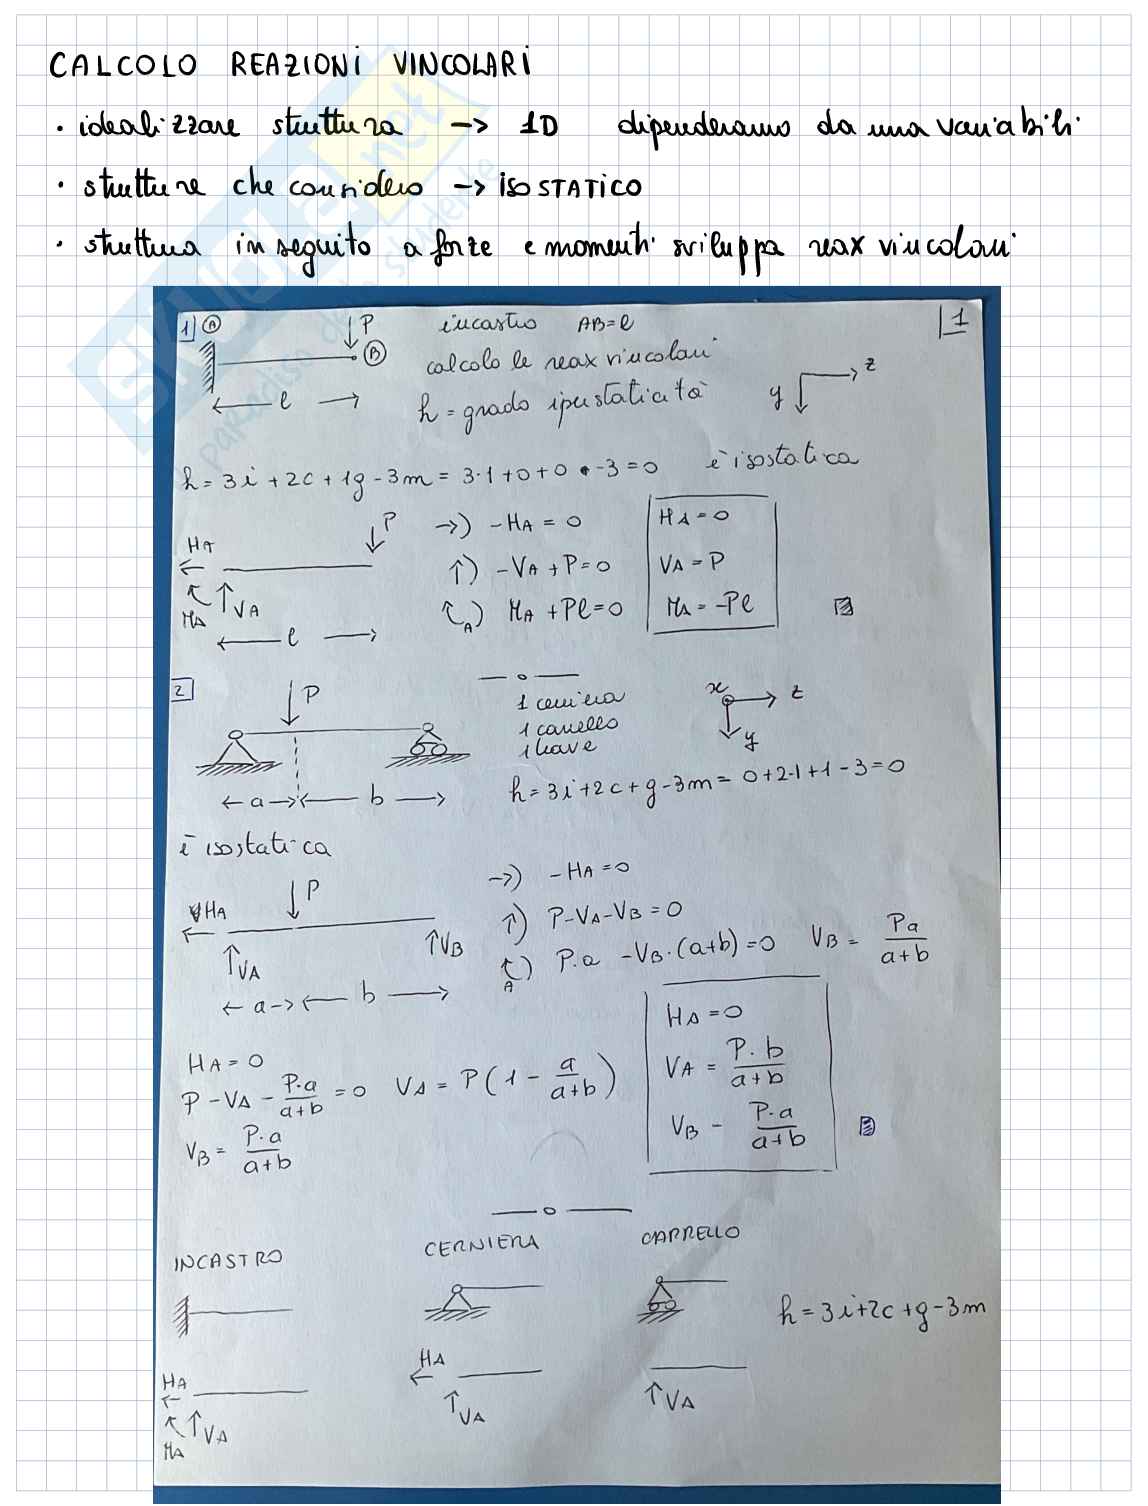 CALCOLO REAZIONI VINCOLARI
• idealizzare struttura → 1D dipenderanno da una variabili
• strutture che considero → ISOSTATICO
• struttura in seguito a forze e momenti sviluppa reax vincolari
1] A P incastro AB=l 1
B calcolo le reax vincolari
l h = grado iperstaticità y z
h = 3i + 2c + 1g - 3m = 3·1 + 0 + 0 - 3 = 0 è isostatica
P →) -HA = 0 HA = 0
HA ↑) -VA + P = 0 VA = P
MA VA A) MA + Pl = 0 MA = -Pl
l
2 P 1 cerniera x z
1 carrello y
1 trave
a b h = 3i + 2c + g - 3m = 0 + 2·1 + 1 - 3 = 0
è isostatica
P →) -HA = 0
HA ↑) P - VA - VB = 0
VA VB A) P·a - VB·(a+b) = 0 VB = Pa/(a+b)
a b
HA = 0 HA = 0
P - VA - P·a/(a+b) = 0 VA = P(1 - a/(a+b)) VA = P·b/(a+b)
VB = P·a/(a+b) VB - P·a/(a+b)
INCASTRO CERNIERA CARRELLO
h = 3i + 2c + g - 3m
HA HA
MA VA VA VA
SKUOLA.net
paradiso dello studente